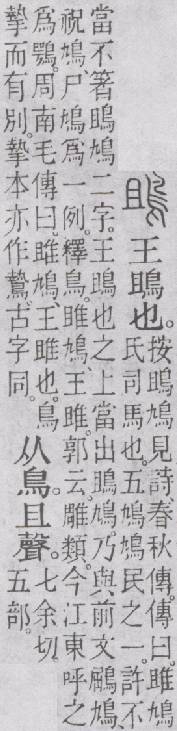 鴡 王鴡也。
按鴡鳩見詩、春秋傳。傳曰。雎鳩
氏司馬也。五鳩鳩民之一。許不
當不箸鴡鳩二字。王鴡也之上當出鴡鳩。乃與前文鶌鳩、
祝鳩、尸鳩爲一例。釋鳥。雎鳩、王雎。郭云。雕類。今江東呼之
爲鶚。周南毛傳曰。雎鳩王雎也。鳥
摯而有別。摯本亦作鷙。古字同。
从鳥且聲。
七余切。
五部。